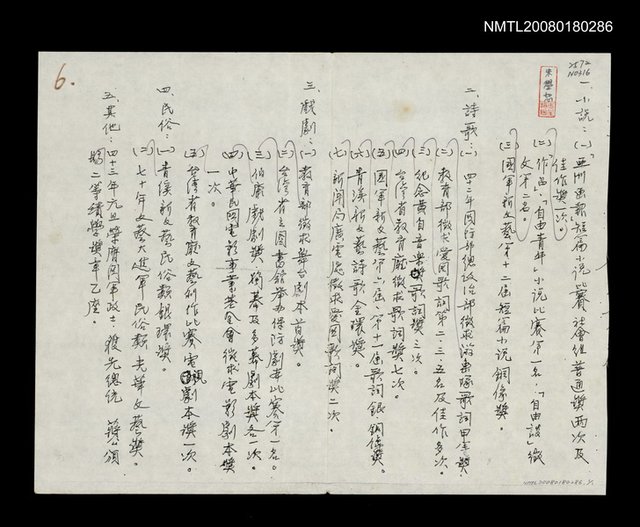 NMTL20080180286
2572
NO316
6.
朱學恕
一、小說：(一)亞洲畫報短篇小說比賽社會組普通獎兩次及
佳作獎一次。
(二)作品「自由青年」小說比賽第一名，「自由談」徵
文第二名。
(三)國軍新文藝第十二屆短篇小說銅像獎。
二、詩歌：(一)四十二年國防部總政治部徵求游擊隊歌詞甲等獎。
(二)教育部徵求愛國歌詞第二、三、五名及佳作多次。
(三)紀念黃自音樂歌詞獎三次。
(四)台灣省教育廳徵求歌詞獎七次。
(五)國軍新文藝第六屆、第十一屆歌詞銀銅像獎。
(六)青溪新文藝詩歌金環獎。
(七)新聞局廣電處徵求愛國歌詞獎二次。
三、戲劇：(一)教育部徵求舞台劇本首獎。
(二)台灣省立圖書館舉辦保防劇本比賽第一名。
(三)伯康戲劇獎獨幕及多幕劇本獎各一次。
(四)中華民國電影事業基金會徵求電影劇本獎
一次。
(五)台灣省教育廳文藝創作比賽電視劇本獎一次。
四、民俗：(一)青溪新文藝民俗類銀環獎。
(二)七十年文藝大進軍民俗類光華文藝獎。
五、其他：四十三年元旦榮膺國軍政士，復先總統 蔣公頒
賜二等績學獎章乙座。
NMTL20080180286